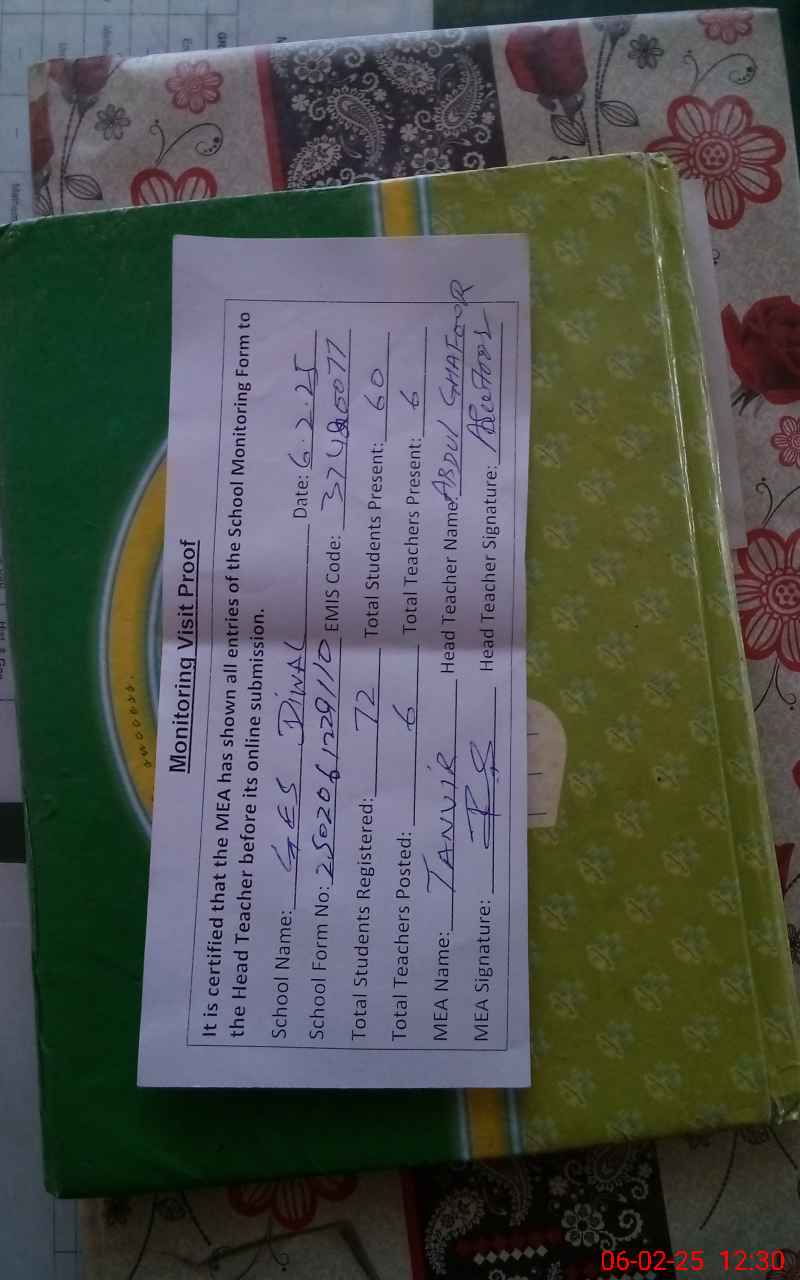 Monitoring Visit Proof
It is certified that the MEA has shown all entries of the School Monitoring Form to
the Head Teacher before its online submission.
School Name: GES DIWAL Date: 6.2.25
School Form No: 2502061229110 EMIS Code:
Total Students Registered: 72 Total Students Present: 60
Total Teachers Posted: 6 Total Teachers Present: 6
MEA Name: TANVIR Head Teacher Name: ABDUL GHAFOOR
MEA Signature: Head Teacher Signature:
success.
06-02-25 12:30